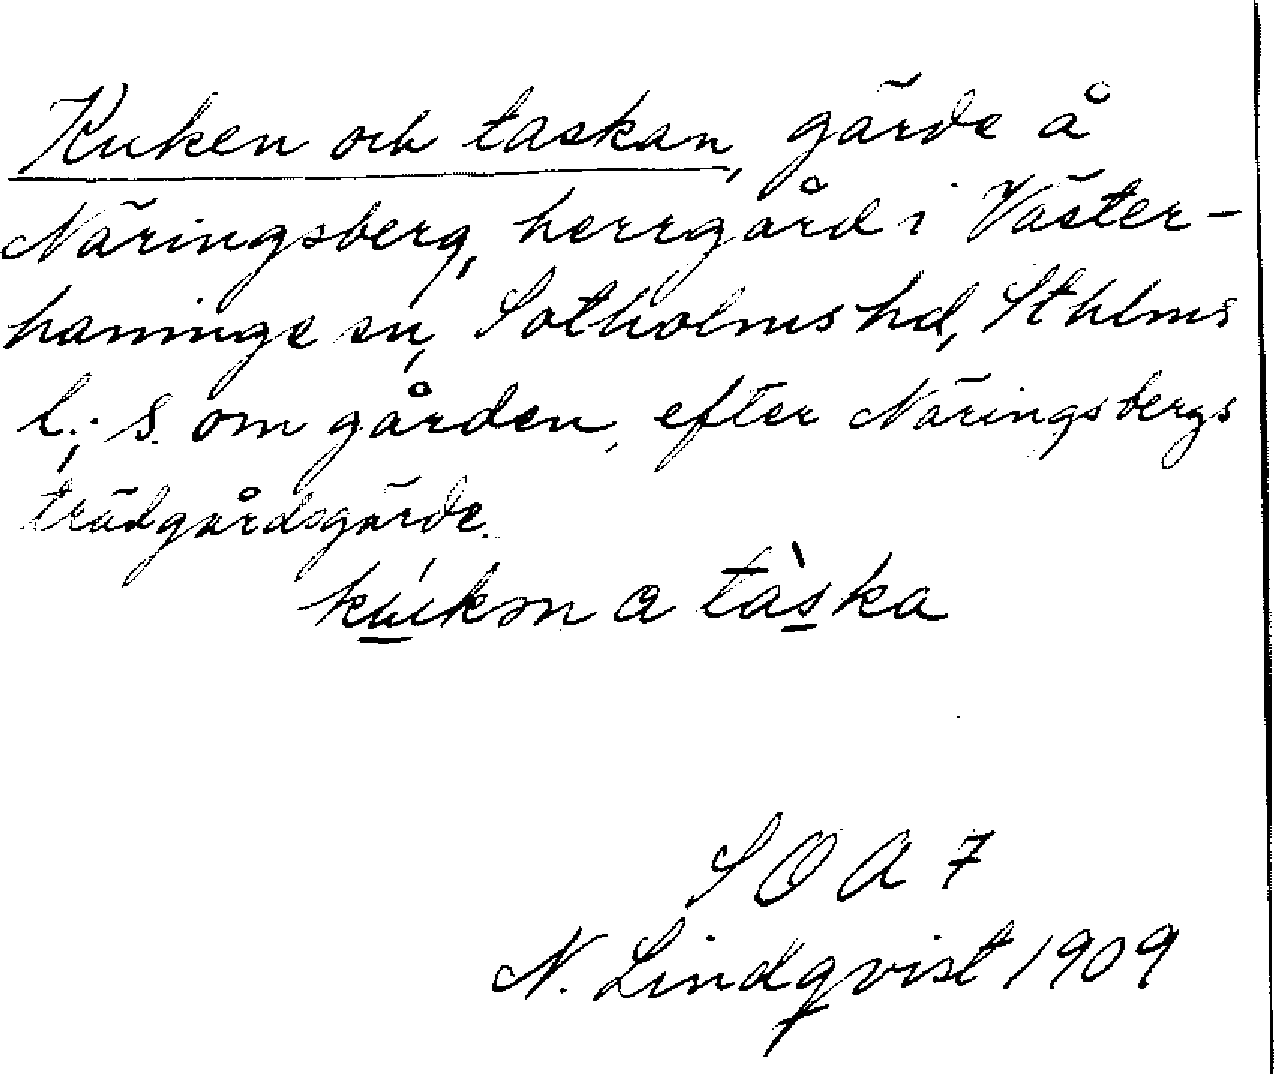 Kuken och taskan, gärde å
Näringsberg, herrgård i Väster-
haninge sn, Sotholms hd, Sthlms
l.; s. om gården, efter Näringsbergs
trädgårdsgärde.
kúkən a tàska
SOA 7
N. Lindqvist 1909